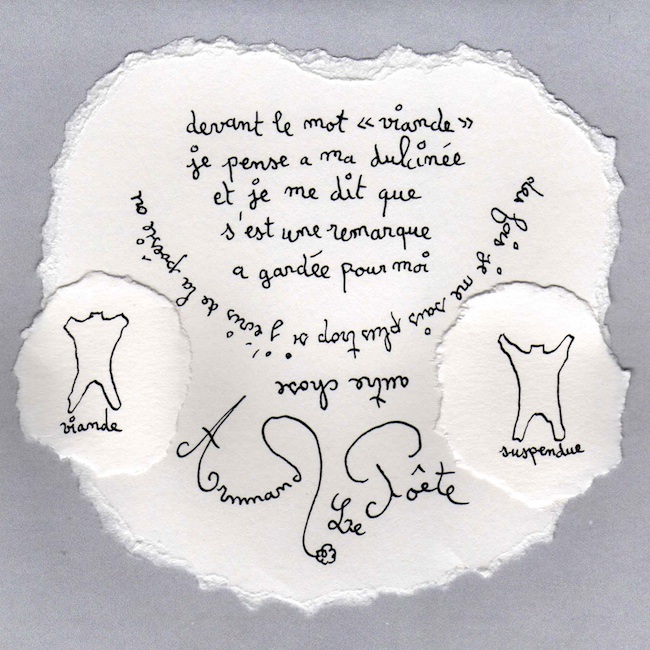 devant le mot « viande »
je pense a ma dulcinée
et je me dit que
s'est une remarque
a gardée pour moi
des fois je me sais plus trop si j'ecris de la poésie ou
autre chose
viande
suspendue
Armand
Le Poête